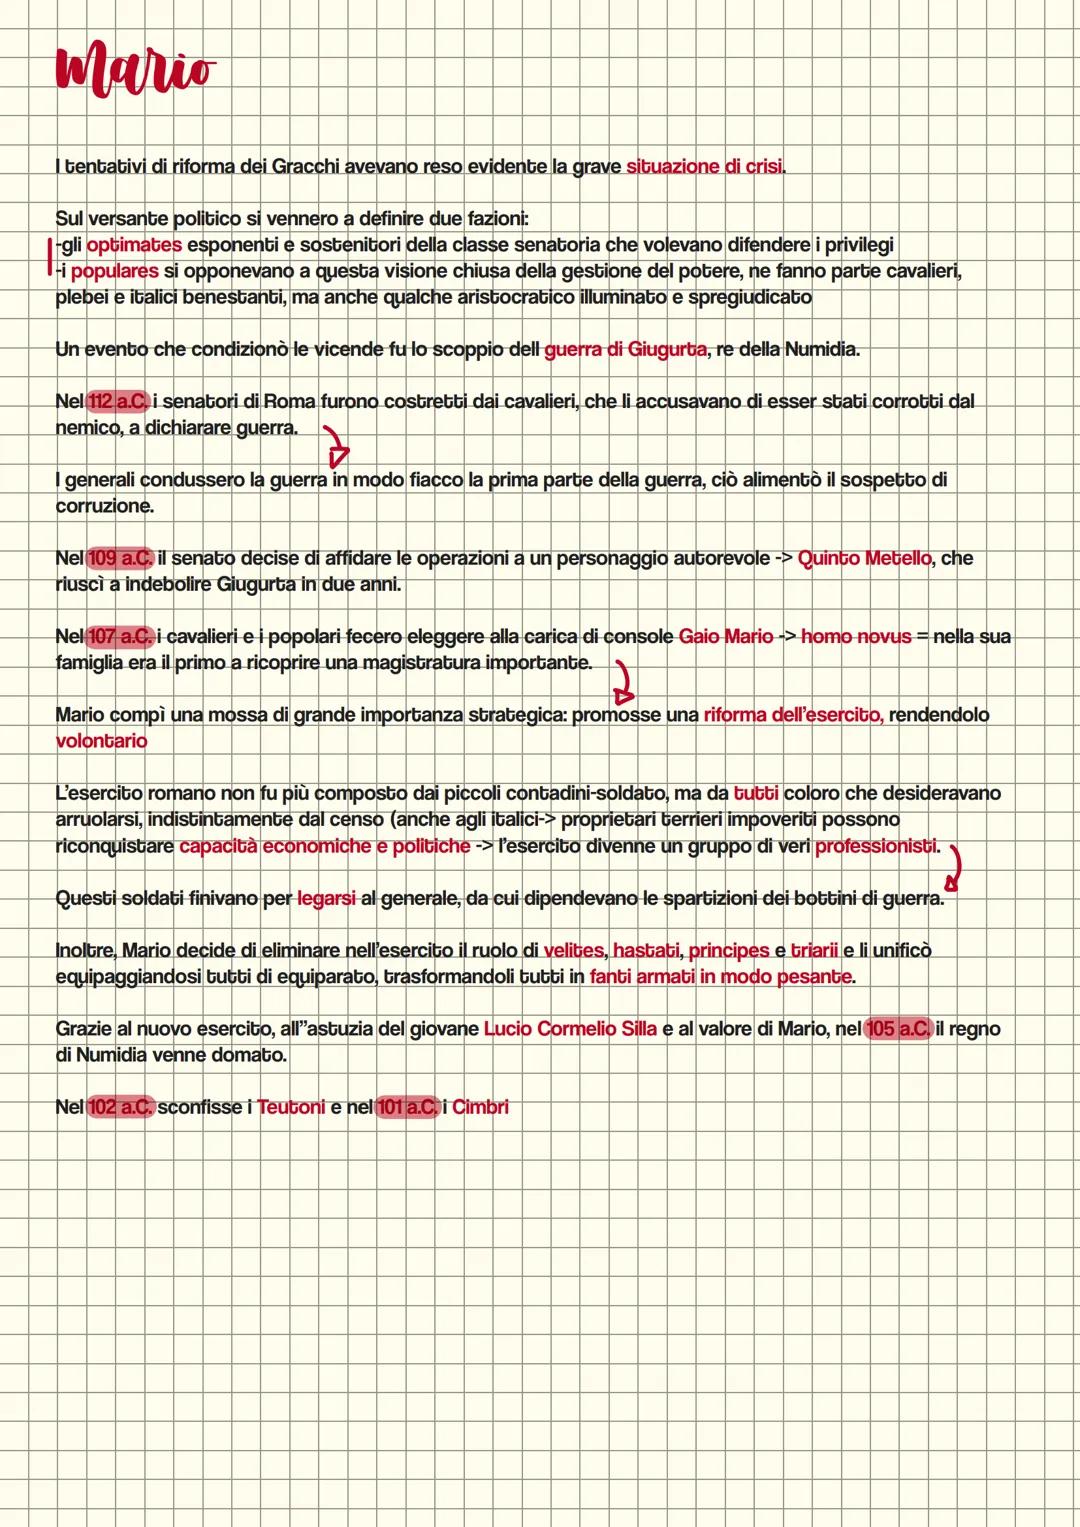 Mario
I tentativi di riforma dei Gracchi avevano reso evidente la grave situazione di crisi.
Sul versante politico si vennero a definire due fazioni:
-gli optimates esponenti e sostenitori della classe senatoria che volevano difendere i privilegi
-i populares si opponevano a questa visione chiusa della gestione del potere, ne fanno parte cavalieri,
plebei e italici benestanti, ma anche qualche aristocratico illuminato e spregiudicato
Un evento che condizionò le vicende fu lo scoppio dell guerra di Giugurta, re della Numidia.
Nel 112 a.C. i senatori di Roma furono costretti dai cavalieri, che li accusavano di esser stati corrotti dal
nemico, a dichiarare guerra.
I generali condussero la guerra in modo fiacco la prima parte della guerra, ciò alimentò il sospetto di
corruzione.
Nel 109 a.C. il senato decise di affidare le operazioni a un personaggio autorevole -> Quinto Metello, che
riuscì a indebolire Giugurta in due anni.
Nel 107 a.C. i cavalieri e i popolari fecero eleggere alla carica di console Gaio Mario -> homo novus = nella sua
famiglia era il primo a ricoprire una magistratura importante.
Mario compì una mossa di grande importanza strategica: promosse una riforma dell'esercito, rendendolo
volontario
L'esercito romano non fu più composto dai piccoli contadini-soldato, ma da tutti coloro che desideravano
arruolarsi, indistintamente dal censo (anche agli italici-> proprietari terrieri impoveriti possono
riconquistare capacità economiche e politiche -> l'esercito divenne un gruppo di veri professionisti.
Questi soldati finivano per legarsi al generale, da cui dipendevano le spartizioni dei bottini di guerra.
Inoltre, Mario decide di eliminare nell'esercito il ruolo di velites, hastati, principes e triarii e li unificò
equipaggiandosi tutti di equiparato, trasformandoli tutti in fanti armati in modo pesante.
Grazie al nuovo esercito, all''astuzia del giovane Lucio Cormelio Silla e al valore di Mario, nel 105 a.C. il regno
di Numidia venne domato.
Nel 102 a.C. sconfisse i Teutoni e nel 101 a.C. i Cimbri